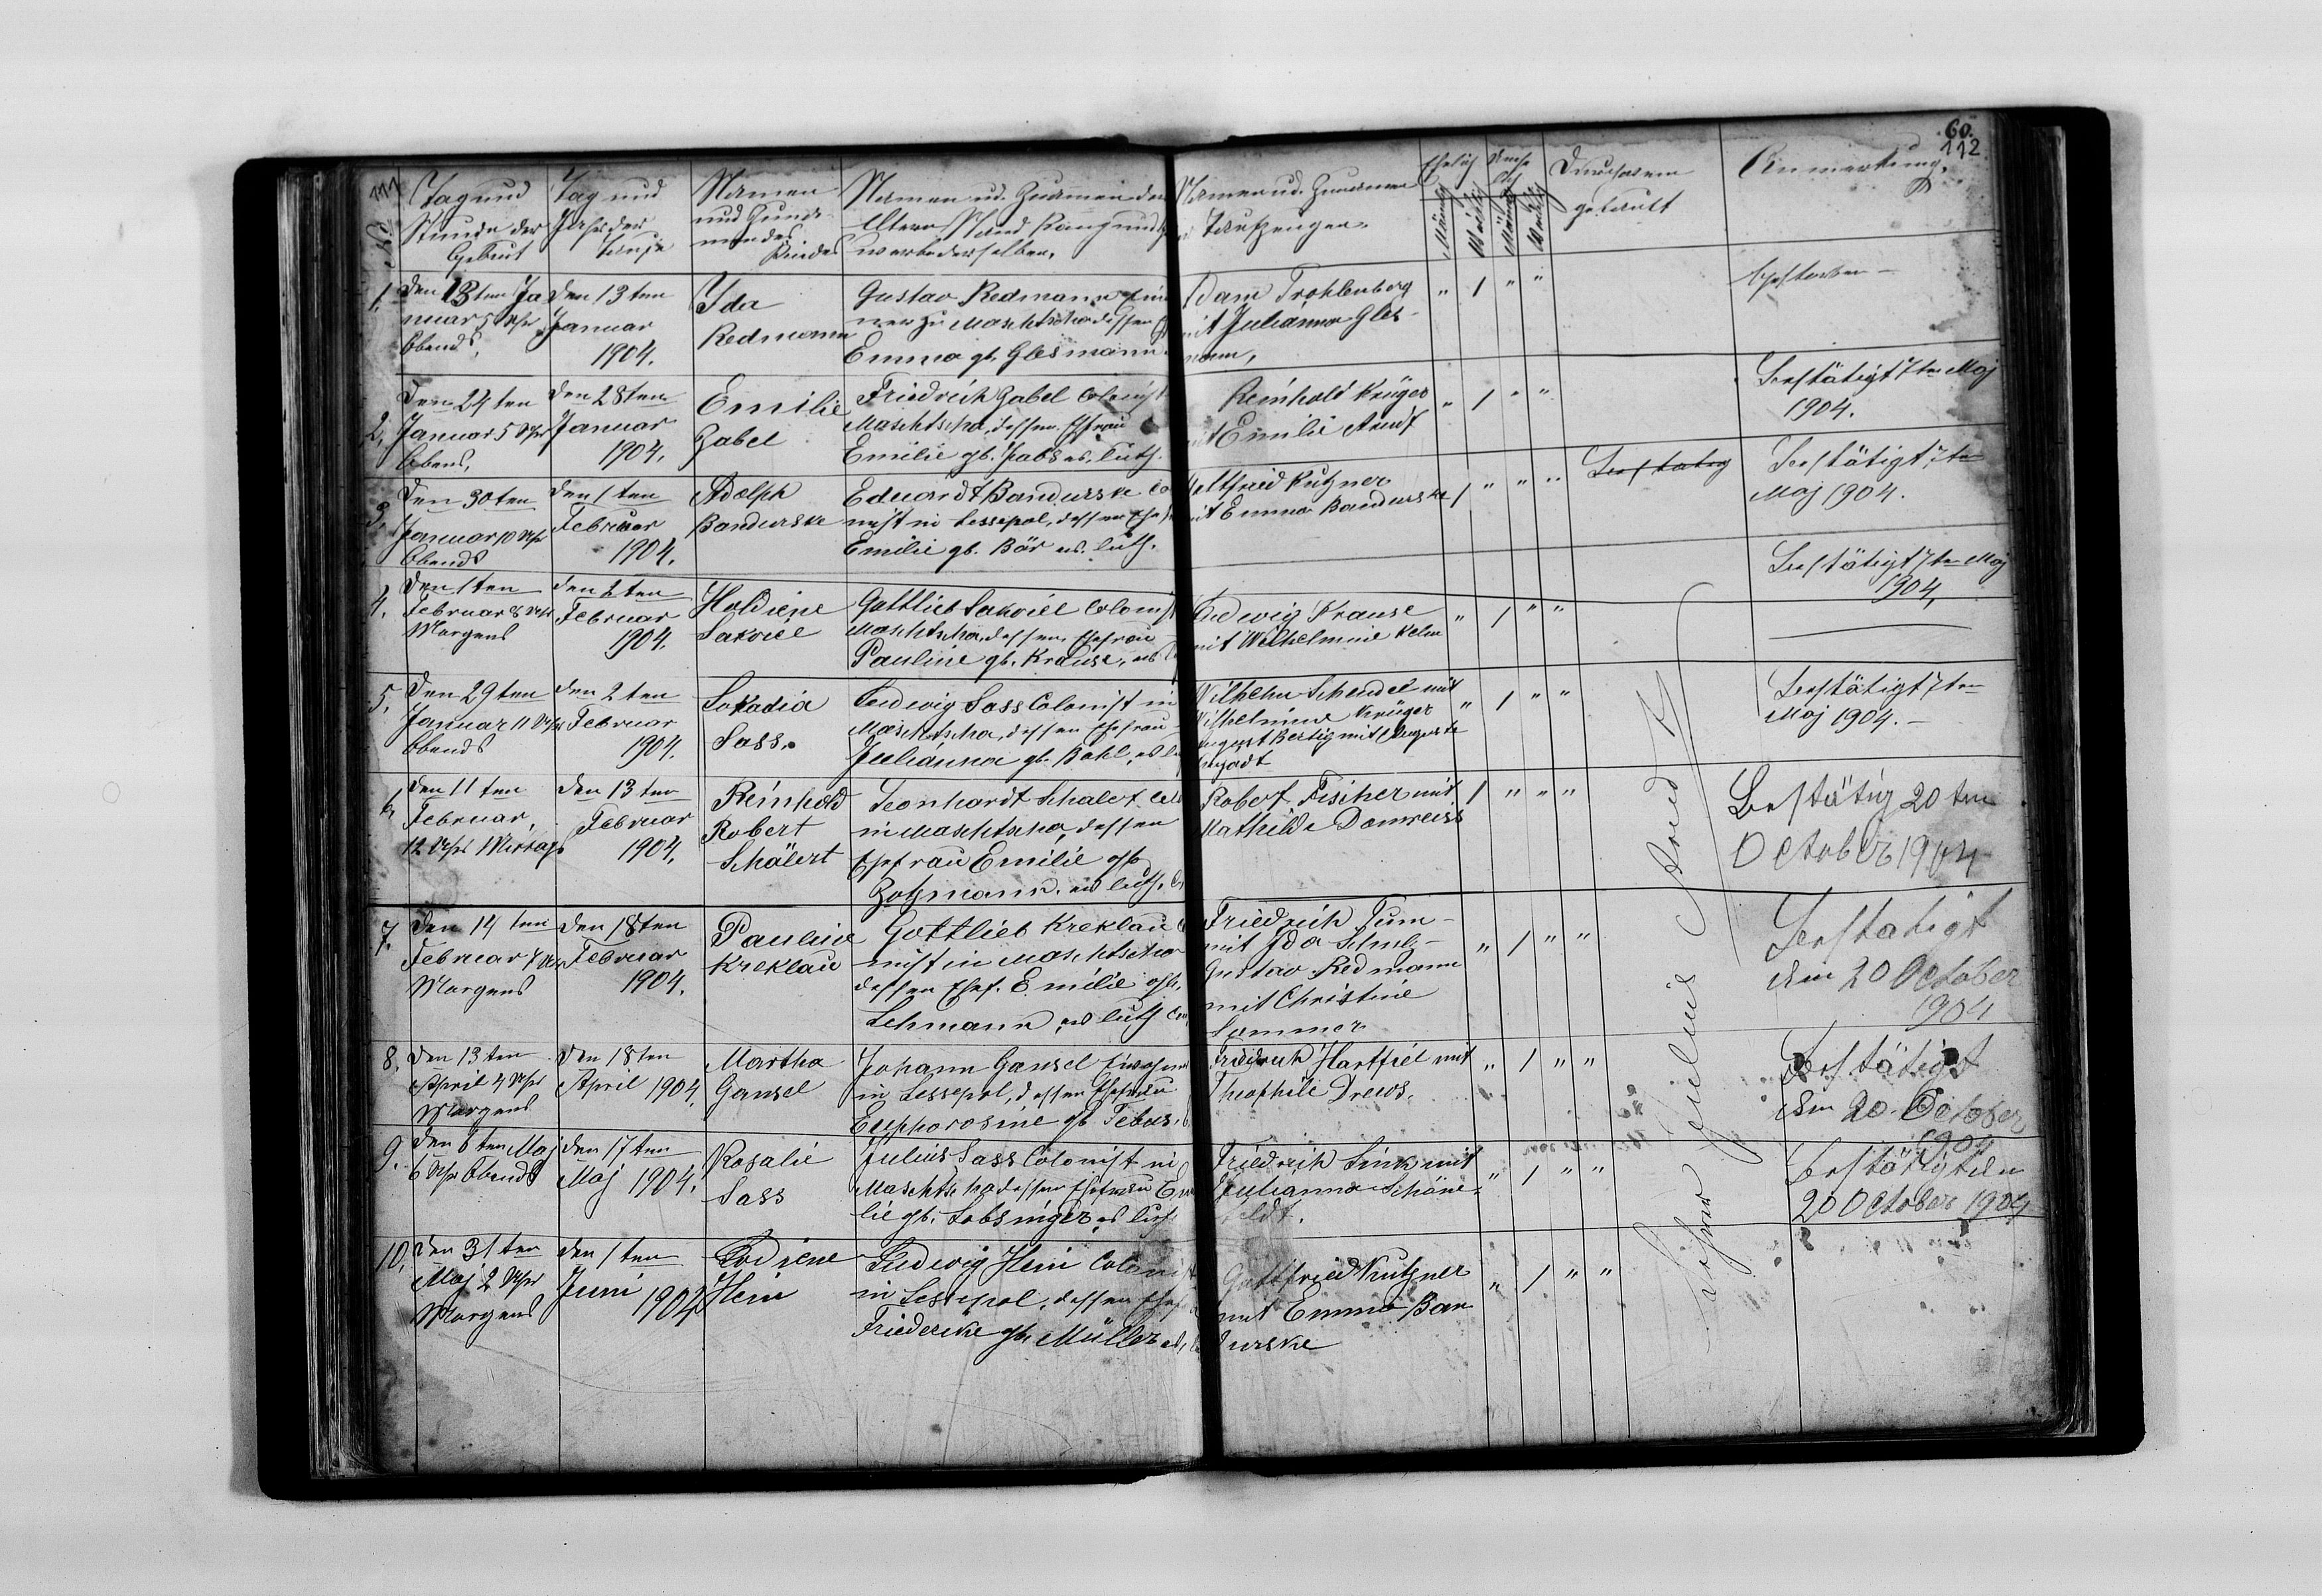 111
60.
112
No.
Tag und
Stunde der
Geburt
Tag und
Jahr der
Taufe
Namen
und Zuna-
men des
Kindes
Namen ud. Zunamen der
Eltern Stand Rang und
werbe derselben.
Namen ud. Zunamen
Taufzeugen.
Ehelich
Männl.
Weibl.
Männl.
Weibl.
Durch wem
getauft
Anmerkung.
1.
Den 13ten Ja
nuar 5 Uhr
Abends,
Den 13ten
Januar
1904.
Ida
Redmann
Gustav Redmann
ner zu Maschtscha dessen
Emma gb. Glesmann
Adam Trohlenberg
mit Julianna Gles-
mann,
" 1 " "
Gestorben –
2.
Den 24ten
Januar 5 Uhr
Abens,
Den 28ten
Januar
1904.
Emilie
Zabel
Friedrich Zabel Colonist
Maschtscha, dessen Ehfrau
Emilie gb. Jabs ev. luth.
Reinhold Krüger
mit Emilie Arndt
" 1 " "
Bestätigt 7ten Maj
1904.
3.
Den 30ten
Januar 10 Uhr
Abends
Den 1ten
Februar
1904.
Adolph
Bandurske
Eduardt Bandurske Co
nist in Lessepol, dessen Ehe
Emilie gb. Bär ev. luth.
Gottfried Kutzner
mit Emma Bandurske
1 " " "
Bestatig
Bestätigt 7ten
Maj 1904.
4.
Den 1ten
Februar 8 Uhr
Morgens
Den 2ten
Februar
1904.
Holdiene
Sakriel
Gottlieb Sakriel Colonist
Maschtscha, dessen Ehefrau
Pauline gb. Krause, ev.
Ludwig Krause
mit Wilhelmine Kelm
" 1 " "
Bestätigt 7ten Maj
1904,
5.
Den 29ten
Januar 11 Uhr
Abends
Den 2ten
Februar
1904.
Lokadia
Sass.
Ludwig Sass Colonist in
Maschtscha, dessen Ehefrau
Julianna gb. Bohl, ev. lu
Wilhelm Schendel mit
Wilhelmine Krüger
August Bertig mit Auguste
" 1 " "
Bestätigt 7ten
Maj 1904. –
6.
Den 11ten
Februar,
12 Uhr Mittags
Den 13ten
Februar
1904.
Reinhold
Robert
Schälert
Leonhardt Schalert Col
in Maschtscha, dessen
Ehefrau Emilie gb.
Zotzmann. ev. luth.
Robert Fischer mit
Mathilde Domreiss
1 " " "
Bestätig 20ten
October 1904
7.
Den 14ten
Februar 4 Uhr
Morgens
Den 18ten
Februar
1904.
Pauline
Kreklau
Gottlieb Kreklau
nist in Maschtscha
dessen Ehef. Emilie gb.
Lehmann, ev. luth
Friedrich Jum-
mit Ida Schulz-
Gustav Redmann
mit Christine
Sommer
" 1 " "
Bestatigt
den 20 October
1904
8.
Den 13ten
April 4 Uhr
Morgens
Den 18ten
April 1904.
Martha
Gansel
Johann Gansel Einwohn
in Lessepol, dessen Ehefrau
Euphorosine gb. Tebus.
Friedrich Hartfiel mit
Theophile Drews.
" 1 " "
Bestätigt
den 20. October
1904
9.
Den 8ten Maj
6 Uhr Abends
Den 17ten
Maj 1904.
Rosalie
Sass
Julius Sass Colonist in
Maschtscha dessen Ehefrau Em
lie gb. Lobsinger, ev. luth.
Friedrich Link mit
Julianna Schöne-
feldt.
" 1 " "
Bestätigt den
20 October 1904
10.
Den 31ten
Maj 2 Uhr
Morgens
Den 1ten
Juni
1904
Lodiene
Hein
Ludwig Hein Colonist
in Lessepol, dessen Ehef
Friedericke gb. Müller ev.
Gottfried Kutzner
mit Emma Ban
durske
" 1 " "
Lehrer Julius Arndt